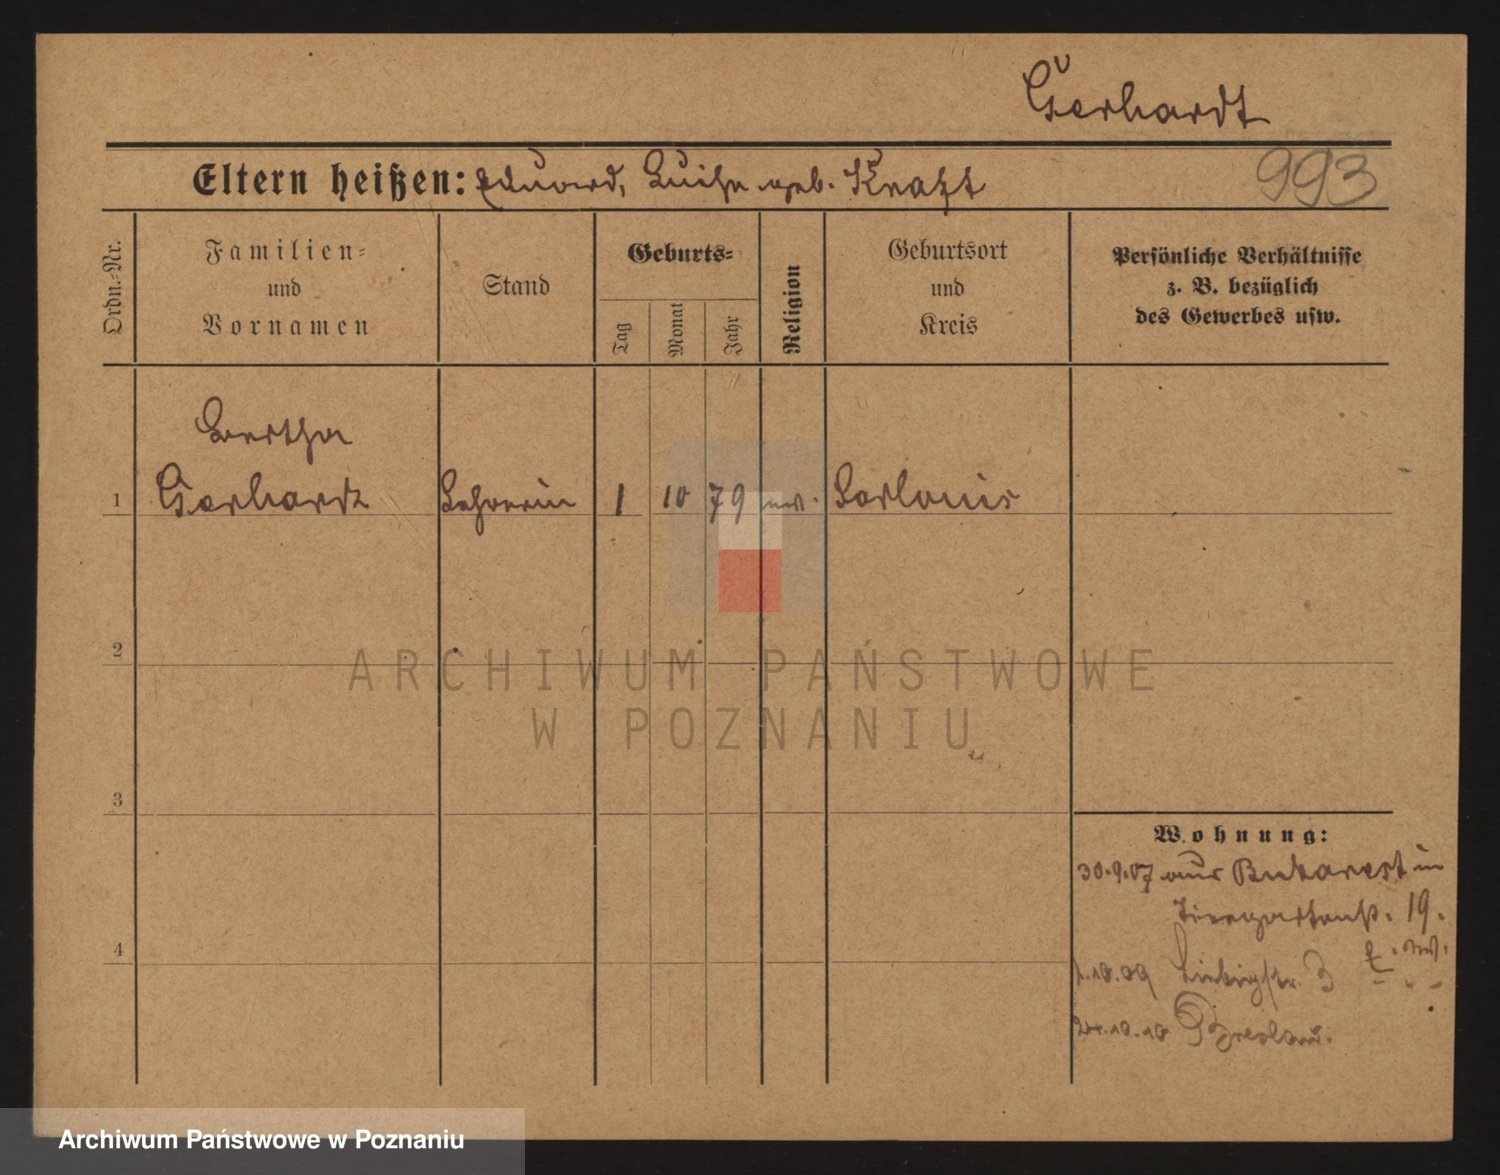 Gerhardt
Eltern heißen: Eduard, Luise geb. Kraft
993
Ordn.-Nr.
Familien-
und
Vornamen
Stand
Geburts-
Tag
Monat
Jahr
Religion
Geburtsort
und
Kreis
Persönliche Verhältnisse
z. B. bezüglich
des Gewerbes usw.
Bertha
1 Gerhardt Lehrerin 1 10 79 Sarlouis
2
3
4
Wohnung:
30.9.07 aus Bukarest in
Tiergartenstr. 19.
1.10.09 Liebigstr. 3
24.10.10 Breslau.
ARCHIWUM PAŃSTWOWE
W POZNANIU
Archiwum Państwowe w Poznaniu